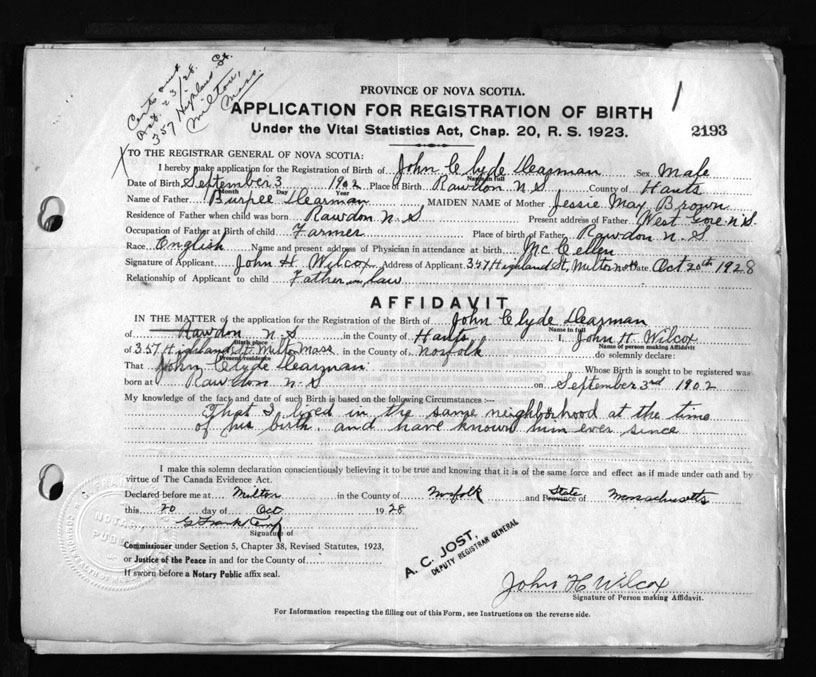 Cert sent
Oct. 23/28.
357 Highland St.
Milton,
Mass.
PROVINCE OF NOVA SCOTIA.
APPLICATION FOR REGISTRATION OF BIRTH
Under the Vital Statistics Act, Chap. 20, R. S. 1923.
1
2193
X TO THE REGISTRAR GENERAL OF NOVA SCOTIA:
I hereby make application for the Registration of Birth of John Clyde Dearman Sex Male
Name in full
Date of Birth September 3 1902 Place of Birth Rawdon N.S County of Hants
Month Day Year
Name of Father Burpee Dearman MAIDEN NAME of Mother Jessie May Brown
Residence of Father when child was born Rawdon N.S Present address of Father West Gore N.S.
Occupation of Father at Birth of child Farmer Place of birth of Father Rawdon N.S
Race English Name and present address of Physician in attendance at birth
Signature of Applicant John H. Wilcox Address of Applicant 357 Highland St, Milton Date Oct 20th 1928
Relationship of Applicant to child Father in law
AFFIDAVIT
IN THE MATTER of the application for the Registration of the Birth of John Clyde Dearman
Name in full
of Rawdon N.S in the County of Hants I, John H. Wilcox
Birth place Name of person making Affidavit
of 357 Highland St Milton Mass in the County of Norfolk do solemnly declare:
Present residence
That John Clyde Dearman Whose Birth is sought to be registered was
born at Rawdon N.S on September 3rd 1902
My knowledge of the fact and date of such Birth is based on the following Circumstances :—
That I lived in the same neighborhood at the time
of his birth and have known him ever since
I make this solemn declaration conscientiously believing it to be true and knowing that it is of the same force and effect as if made under oath and by
virtue of The Canada Evidence Act.
Declared before me at Milton in the County of Norfolk and Province State of Massachusetts
this 20 day of Oct 1928
G Frank Kemp
Signature of
Commissioner under Section 5, Chapter 38, Revised Statutes, 1923,
or Justice of the Peace in and for the County of
If sworn before a Notary Public affix seal.
A. C. JOST,
DEPUTY REGISTRAR GENERAL
John H Wilcox
Signature of Person making Affidavit.
NOTARY
PUBLIC
For Information respecting the filling out of this Form, see Instructions on the reverse side.